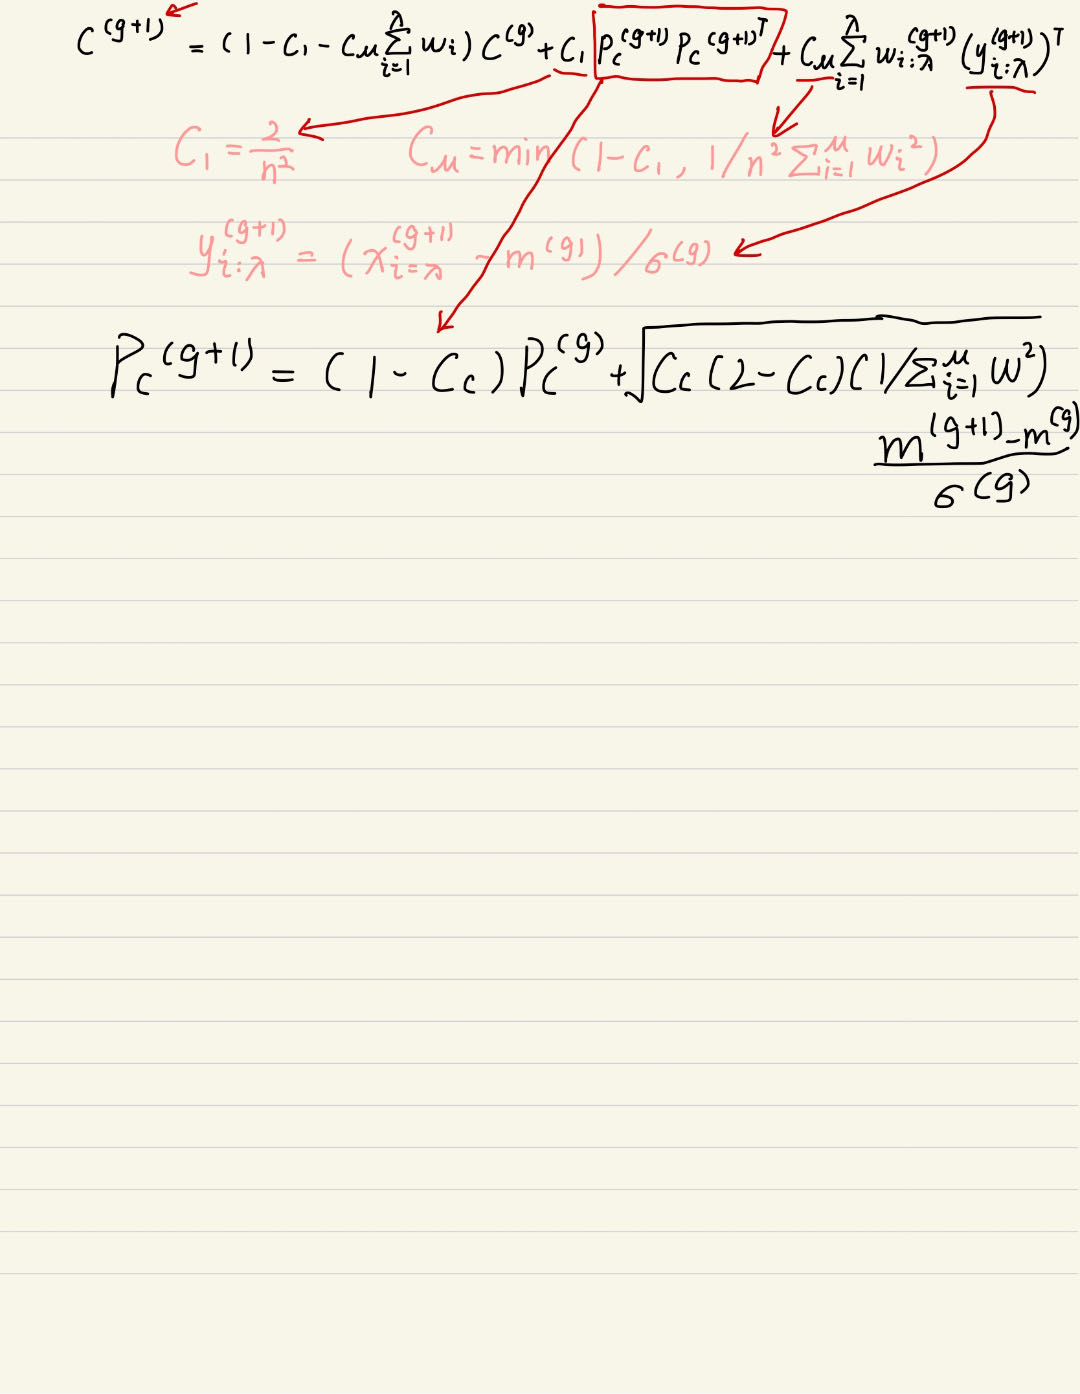 C^(g+1) = (1 - C₁ - Cμ Σ_{i=1}^{λ} wᵢ) C^(g) + C₁ P_c^(g+1) P_c^(g+1)^T + Cμ Σ_{i=1}^{λ} w_{i:λ}^(g+1) (y_{i:λ}^(g+1))^T
C₁ = 2/n² Cμ = min (1 - C₁, 1/n² Σ_{i=1}^{μ} wᵢ²)
y_{i:λ}^(g+1) = (x_{i=λ}^(g+1) - m^(g)) / σ^(g)
P_c^(g+1) = (1 - C_c) P_c^(g) + √(C_c (2 - C_c)(1/Σ_{i=1}^{μ} w²)
m^(g+1) - m^(g)
σ^(g)